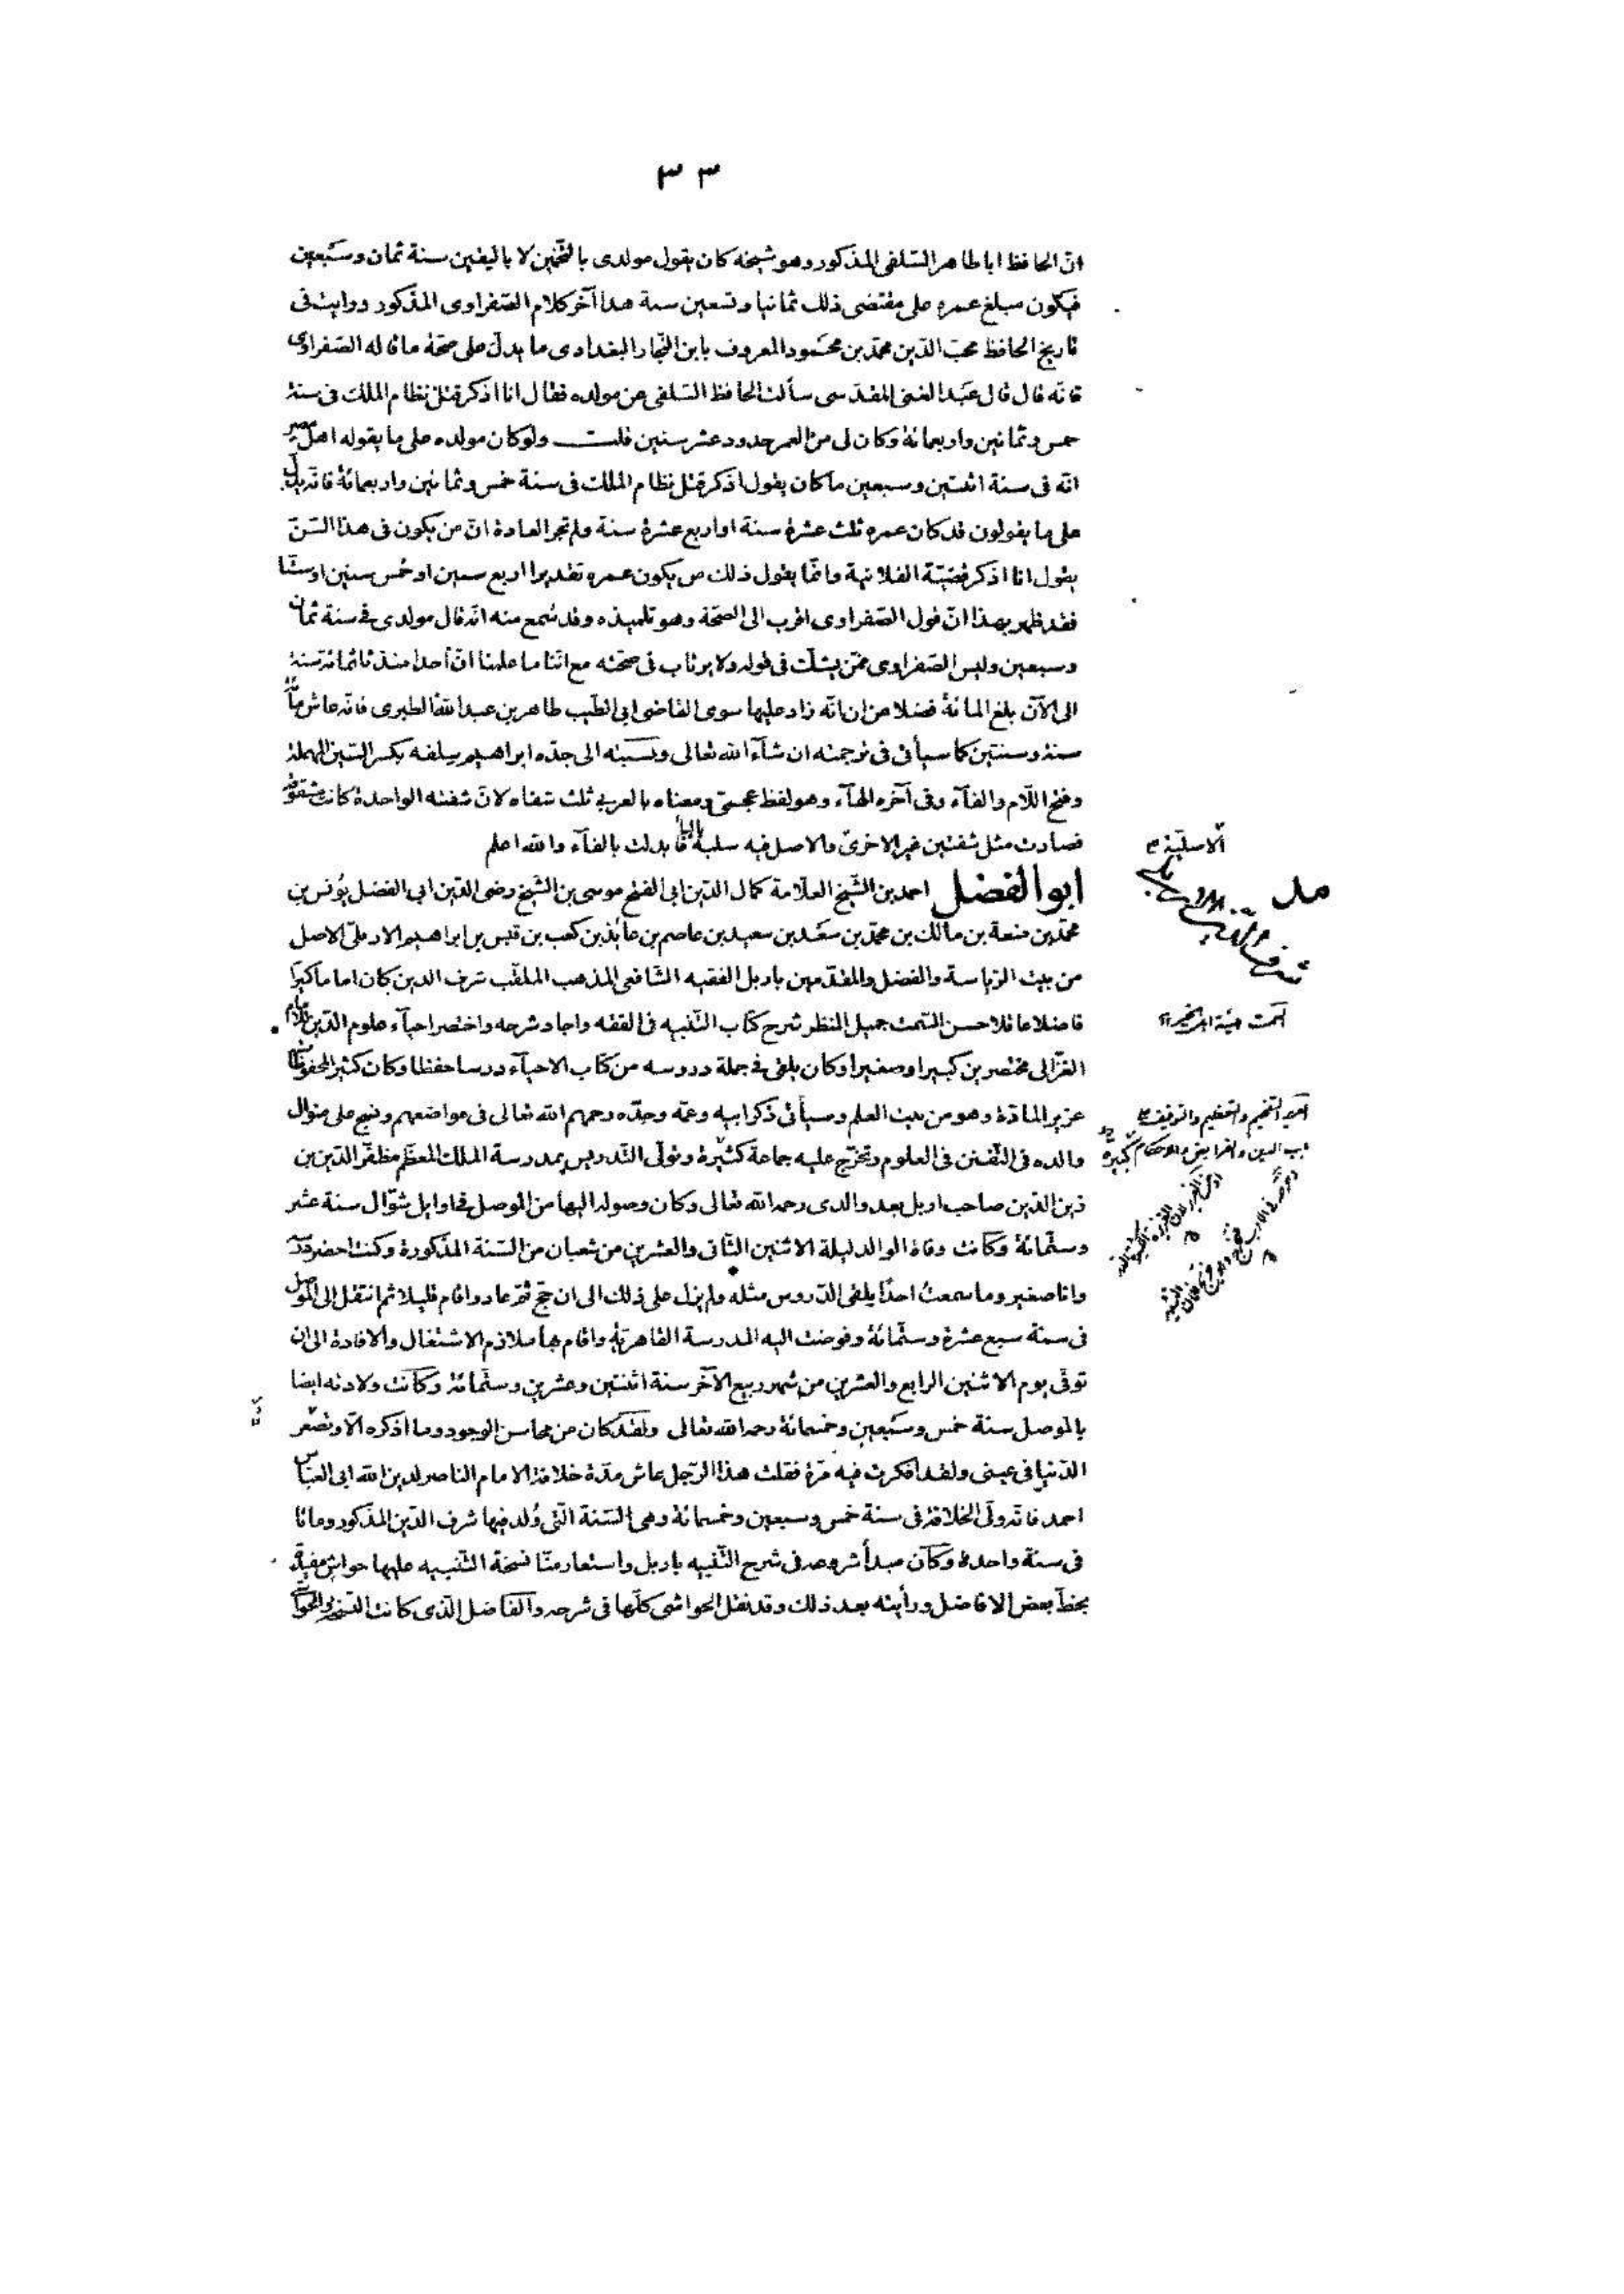 ٣٣
انّ الحافظ ابا طاهر السّلفى المذكور وهو شيخه كان يقول مولدى بالتّخمين لا باليقين سنة ثمان وسبعين
فيكون مبلغ عمره على مقتضى ذلك ثمانيا وتسعين سنة هذا آخر كلام الصّفراوى المذكور ورايت فى
تاريخ الحافظ محبّ الدّين محمّد بن محمود المعروف بابن النّجار البغدادى ما يدلّ على صحّة ما قاله الصّفراوى
فانّه قال قال عبد الغنى المقدّسى سألت الحافظ السّلفى عن مولده فقال انا اذكر قتل نظام الملك فى سنة
خمس وثمانين واربعمائة وكان لى من العمر حدود عشر سنين قلت ولو كان مولده على ما يقوله اهل مصر
انّه فى سنة اثنتين وسبعين ما كان يقول اذكر قتل نظام الملك فى سنة خمس وثمانين واربعمائة فانّه يدلّ
على ما يقولون قد كان عمره ثلث عشرة سنة او اربع عشرة سنة ولم تجر العادة انّ من يكون فى هذا السّنّ
يقول انا اذكر قضيّة الفلانية وانّما يقول ذلك من يكون عمره تقديرا اربع سنين او خمس سنين او ستّا
فقد ظهر بهذا انّ قول الصّفراوى اقرب الى الصّحّة وهو تلميذه وقد سُمع منه انّه قال مولدى فى سنة ثمان
وسبعين وليس الصّفراوى ممّن يشكّ فى قوله ولا يرتاب فى صحّته مع انّنا ما علمنا انّ أحدا منذ ثلثمائة سنة
الى الآن بلغ المائة فضلا عن ان انّه زاد عليها سوى القاضى ابى الطّيب طاهر بن عبد الله الطبرى فانّه عاش مأة
سنة وسنتين كما سيأتى فى ترجمته ان شآء الله تعالى ونسبته الى جدّه ابراهيم سِلفه بكسر السّين المهملة
وفتح اللّام والفآء وفى آخره الهآء وهو لفظ عجمىّ ومعناه بالعربى ثلث شفاه لانّ شفته الواحدة كانت مشقوقة
فصارت مثل شفتين غير الاخرىٰ والاصل فيه سلبه بالبآ فابدلت بالفآء والله اعلم
الاصليّة
ابو الفضل احمد بن الشّيخ العلّامة كمال الدّين ابى الفتح موسى بن الشّيخ رضى الدّين ابى الفضل يُونس بن
محمّد بن منعة بن مالك بن محمّد بن سعد بن سعيد بن عاصم بن عائذ بن كعب بن قيس بن ابراهيم الاربلىّ الاصل
من بيت الرّياسة والفضل والمقدّمين باربل الفقيه الشّافعى المذهب الملقّب شرف الدين كان اماما كبيرا
فاضلا عاقلا حسن السّمت جميل المنظر شرح كتاب التّنبيه فى الفقه واجاد شرحه واختصر احيآء علوم الدّين للامام
السّمت هيئة اهل الخير
الغزّالى مختصرين كبيرا وصغيرا وكان يلقى فى جملة دروسه من كتاب الاحيآء درسا حفظا وكان كثير المحفوظات
عزير المادّة وهو من بيت العلم وسيأتى ذكر ابيه وعمّه وجدّه رحمهم الله تعالى فى مواضعهم ونسج على منوال
والده فى التّفنن فى العلوم وتخرّج عليه جماعة كثيرة وتولّى التّدريس بمدرسة الملك المعظّم مظفّر الدّين بن
زين الدّين صاحب اربل بعد والدى رحمه الله تعالى وكان وصوله اليها من الموصل فى اوايل شوّال سنة عشر
وستّمائة وكانت وفاة الوالد ليلة الاثنين الثّانى والعشرين من شعبان من السّنة المذكورة وكنت احضر درسه
وانا صغير وما سمعتُ احدًا يلقى الدّروس مثله ولم يزل على ذلك الى ان حجّ ثمّ عاد واقام قليلا ثم انتقل الى الموصل
فى سنة سبع عشرة وستّمائة وفوضت اليه المدرسة القاهريّة واقام بها ملازم الاشتغال والافادة الى ان
توفّى يوم الاثنين الرابع والعشرين من شهر ربيع الآخر سنة اثنتين وعشرين وستّمائة وكانت ولادته ايضا
بالموصل سنة خمس وسبعين وخمسمائة رحمه الله تعالى ولقد كان من محاسن الوجود وما اذكره الّا وتصغر
الدّنيا فى عينى ولقد افكرت فيه مرّة فقلت هذا الرّجل عاش مدّة خلافة الامام الناصر لدين الله ابى العبّاس
احمد فانّه ولّى الخلافة فى سنة خمس وسبعين وخمسمائة وهى السّنة الّتى وُلد فيها شرف الدّين المذكور وماتا
فى سنة واحدة وكان مبدأ شروعه فى شرح التّنبيه باربل واستعار منّا نسخة التّنبيه عليها حواش مفيدة
بخطّ بعض الافاضل ورأيته بعد ذلك وقد نقل الحواشى كلّها فى شرحه والفاضل الّذى كانت النّسخة والحواشى